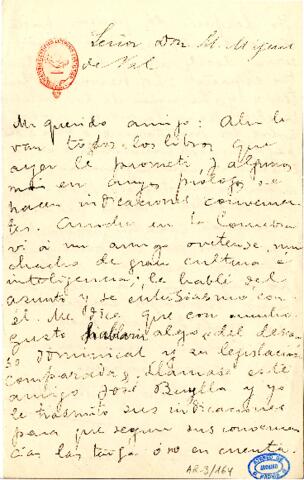 Señor Don M. Miguel
de Val
Mi querido amigo: Ahi le
van todos los libros que
ayer le prometí y algunos
más en cuyos prólogos se
hacen indicaciones convenien-
tes. Anoche en la
vi á mi amigo ovetense, mu-
chacho de gran cultura é
inteligencia; le hablé del
asunto y se entusiasmó con
él. Me dice que con mucho
gusto hablará algo del descan-
so dominical y en legislación
comparada, llámase este
amigo José Buylla y yo
le trasmito sus indicaciones
para que segun sus convenien-
cias las tenga ó no en cuenta.
AR-3/164